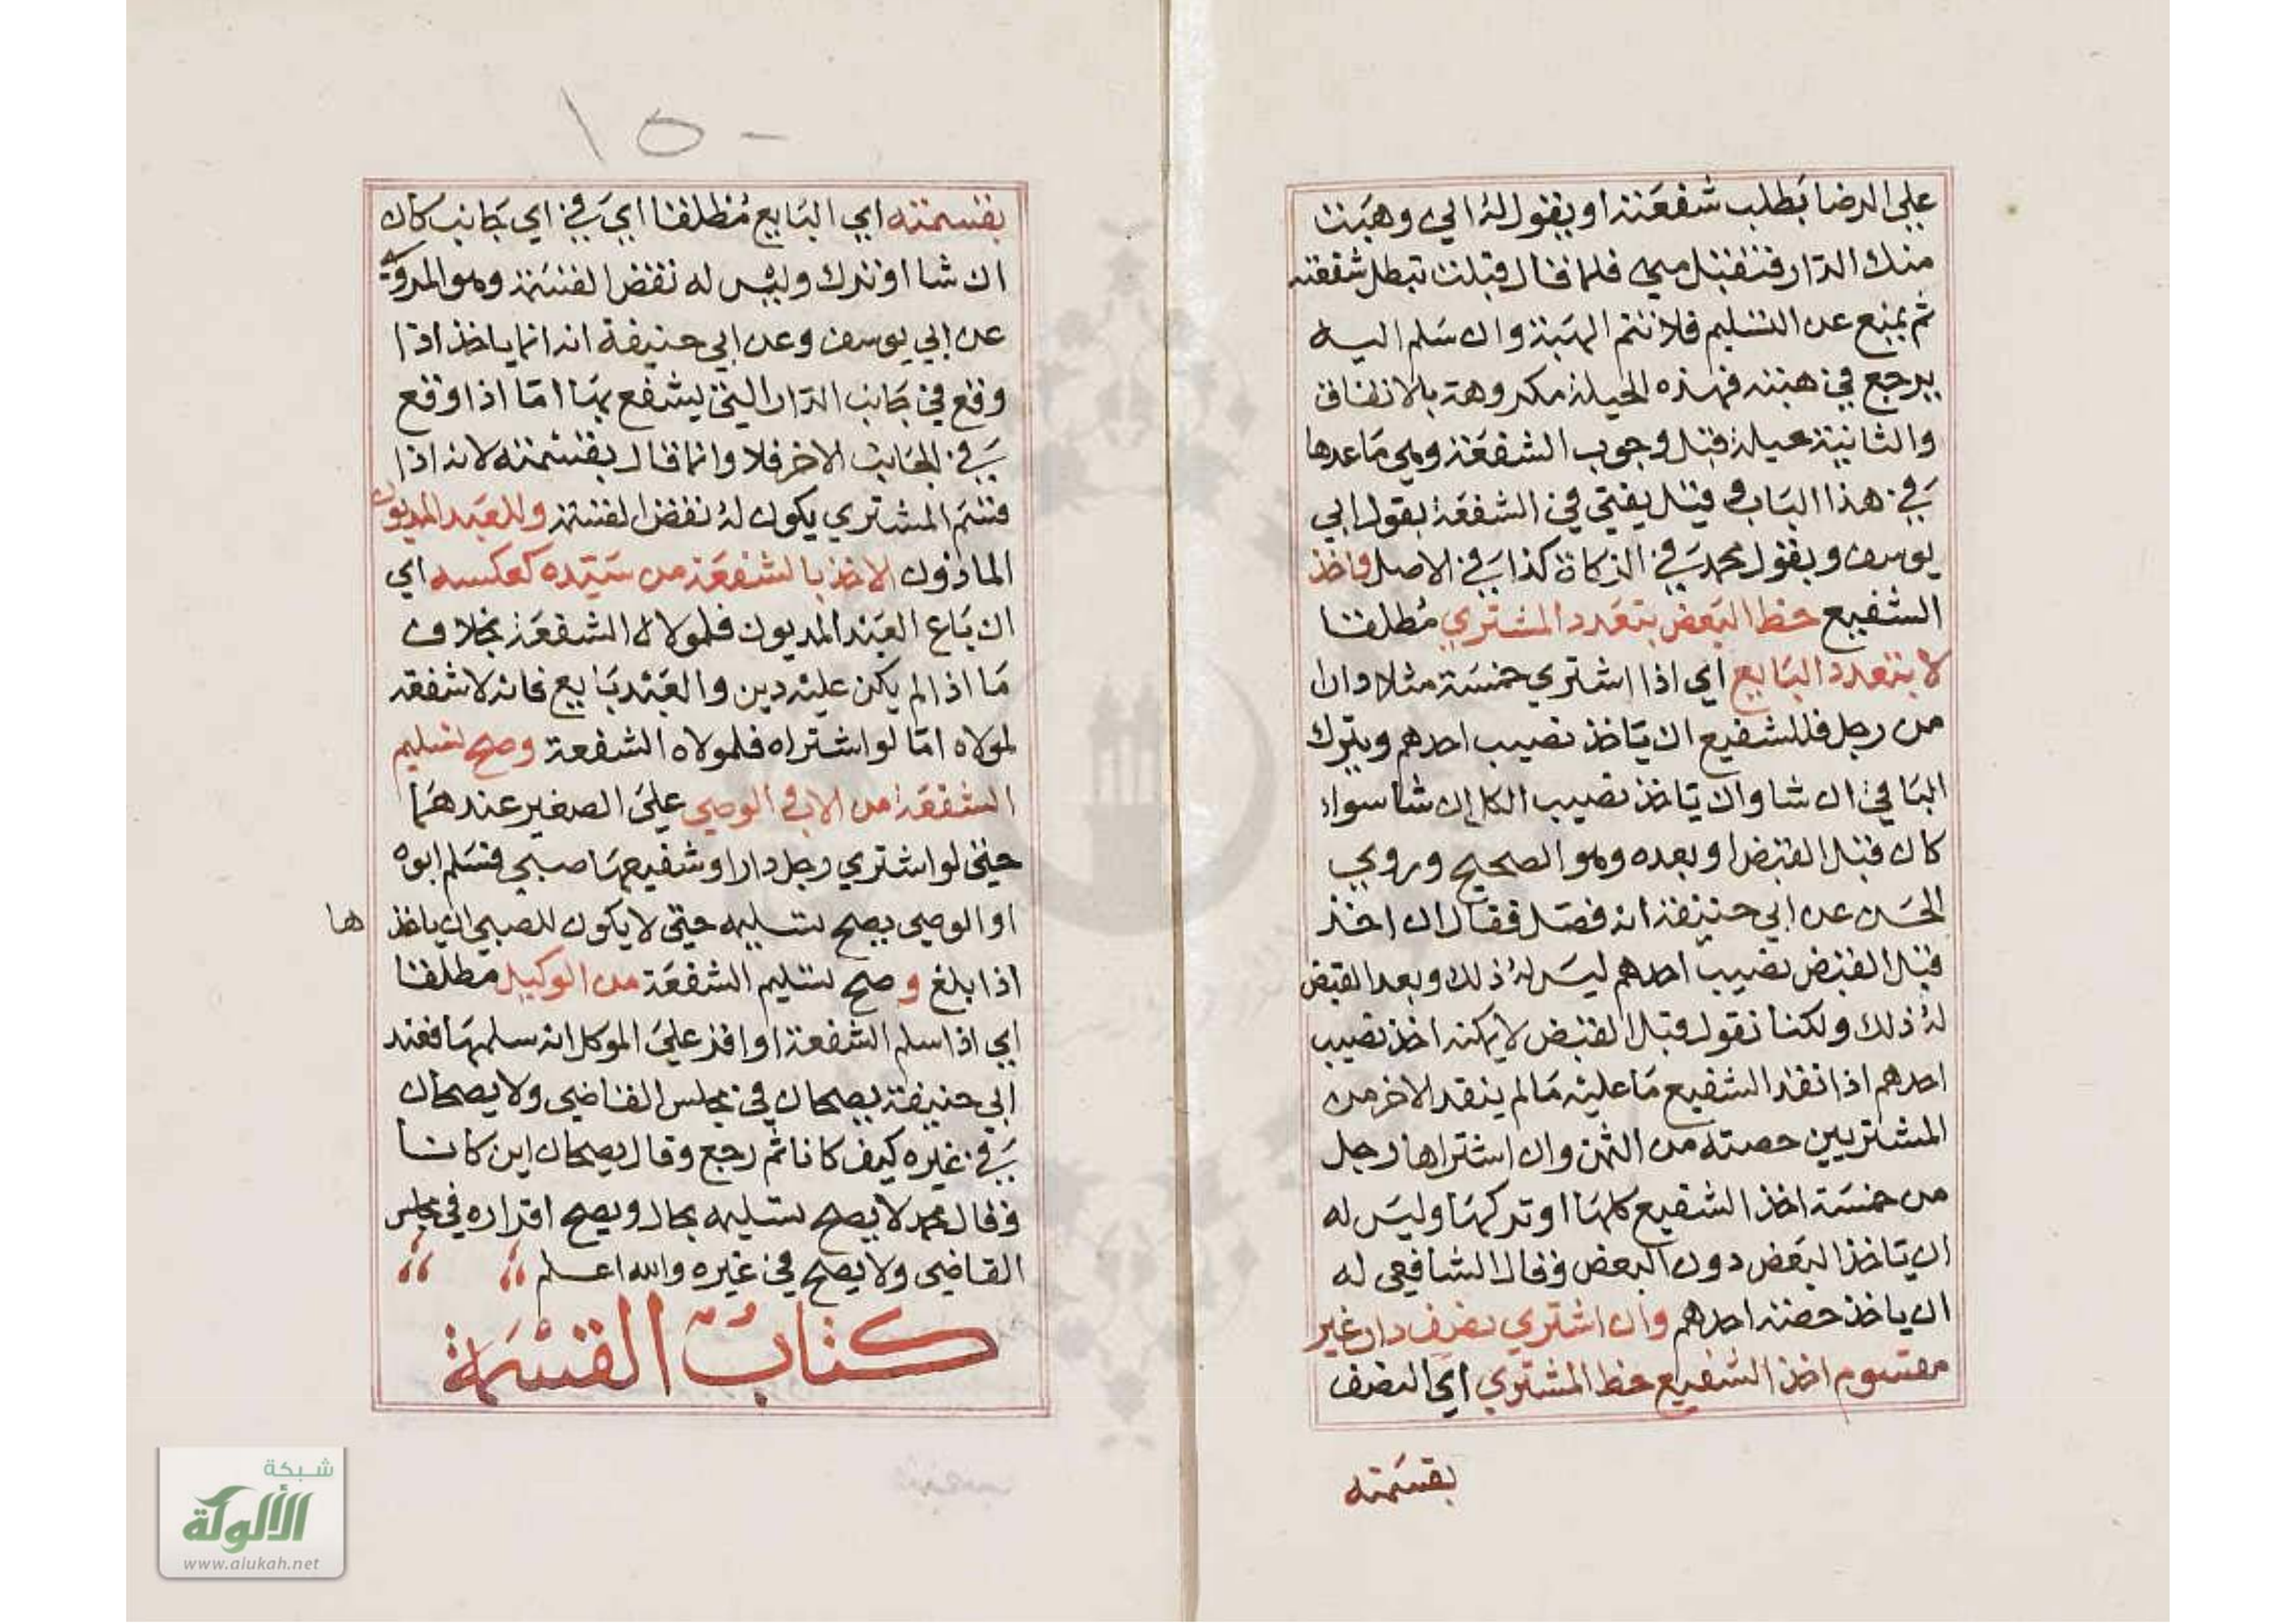 علي الرضا بطلب شفعته او يقول له اني وهبت
منك الدار فتقبل مني فلما قال قبلت تبطل شفعته
ثم يمنع عن التسليم فلا تتم الهبة وان سلم اليه
يرجع في هبته فهذه الحيلة مكروهة بالاتفاق
والثانية حيلة قبل وجوب الشفعة وهي ما عدها
في هذا الباب قيل يفتي في الشفعة بقول ابي
يوسف وبقول محمد في الزكاة كذا في الاصل واخذ
الشفيع حظ البعض بتعدد المشتري مطلقا
لا بتعدد البايع اي اذا اشتري خمسة مثلا دارا
من رجل فللشفيع ان ياخذ نصيب احدهم ويترك
الباقي ان شا وان ياخذ نصيب الكل ان شا سواء
كان قبل القبض او بعده وهو الصحيح وروي
الحسن عن ابي حنيفة انه فصل فقال ان اخذ
قبل القبض نصيب احدهم ليس له ذلك وبعد القبض
له ذلك ولكنا نقول قبل القبض لا يمكنه اخذ نصيب
احدهم اذا نقد الشفيع ما عليه ما لم ينقد الاخر من
المشتريين حصته من الثمن وان اشتراها رجل
من خمسة اخذ الشفيع كلها او تركها وليس له
ان ياخذ البعض دون البعض وقال الشافعي له
ان ياخذ حصته احدهم وان اشتري نصف دار غير
مقسوم اخذ الشفيع حظ المشتري اي النصف
بقسمته
١٥٠
بقسمته اي البايع مطلقا اي في اي جانب كان
ان شا او ترك وليس له نقض القسمة وهو المروي
عن ابي يوسف وعن ابي حنيفة انه انما ياخذ اذا
وقع في جانب الدار التي يشفع بها اما اذا وقع
في الجانب الاخر فلا وانما قال بقسمته لانه اذا
قسم المشتري يكون له نقض القسمة وللعبد المديون
الماذون الاخذ بالشفعة من سيده كعكسه اي
ان باع العبد المديون فلمولاه الشفعة بخلاف
ما اذا لم يكن عليه دين والعبد بايع فانه لا شفعة
لمولاه اما لو اشتراه فلمولاه الشفعة وصح تسليم
الشفعة من الاب والوصي علي الصغير عندهما
حتي لو اشتري رجل دارا وشفيعها صبي فسلم ابوه
او الوصي يصح تسليمه حتي لا يكون للصبي ان ياخذ ها
اذا بلغ وصح تسليم الشفعة من الوكيل مطلقا
اي اذا سلم الشفعة او اقر علي الموكل انه سلمها فعند
ابي حنيفة يصحان في مجلس القاضي ولا يصحان
في غيره كيف كانا ثم رجع وقال يصحان اين كانا
وقال محمد لا يصح تسليمه بحال ويصح اقراره في مجلس
القاضي ولا يصح في غيره والله اعلم
كتاب القسمة
شبكة
الألوكة
www.alukah.net